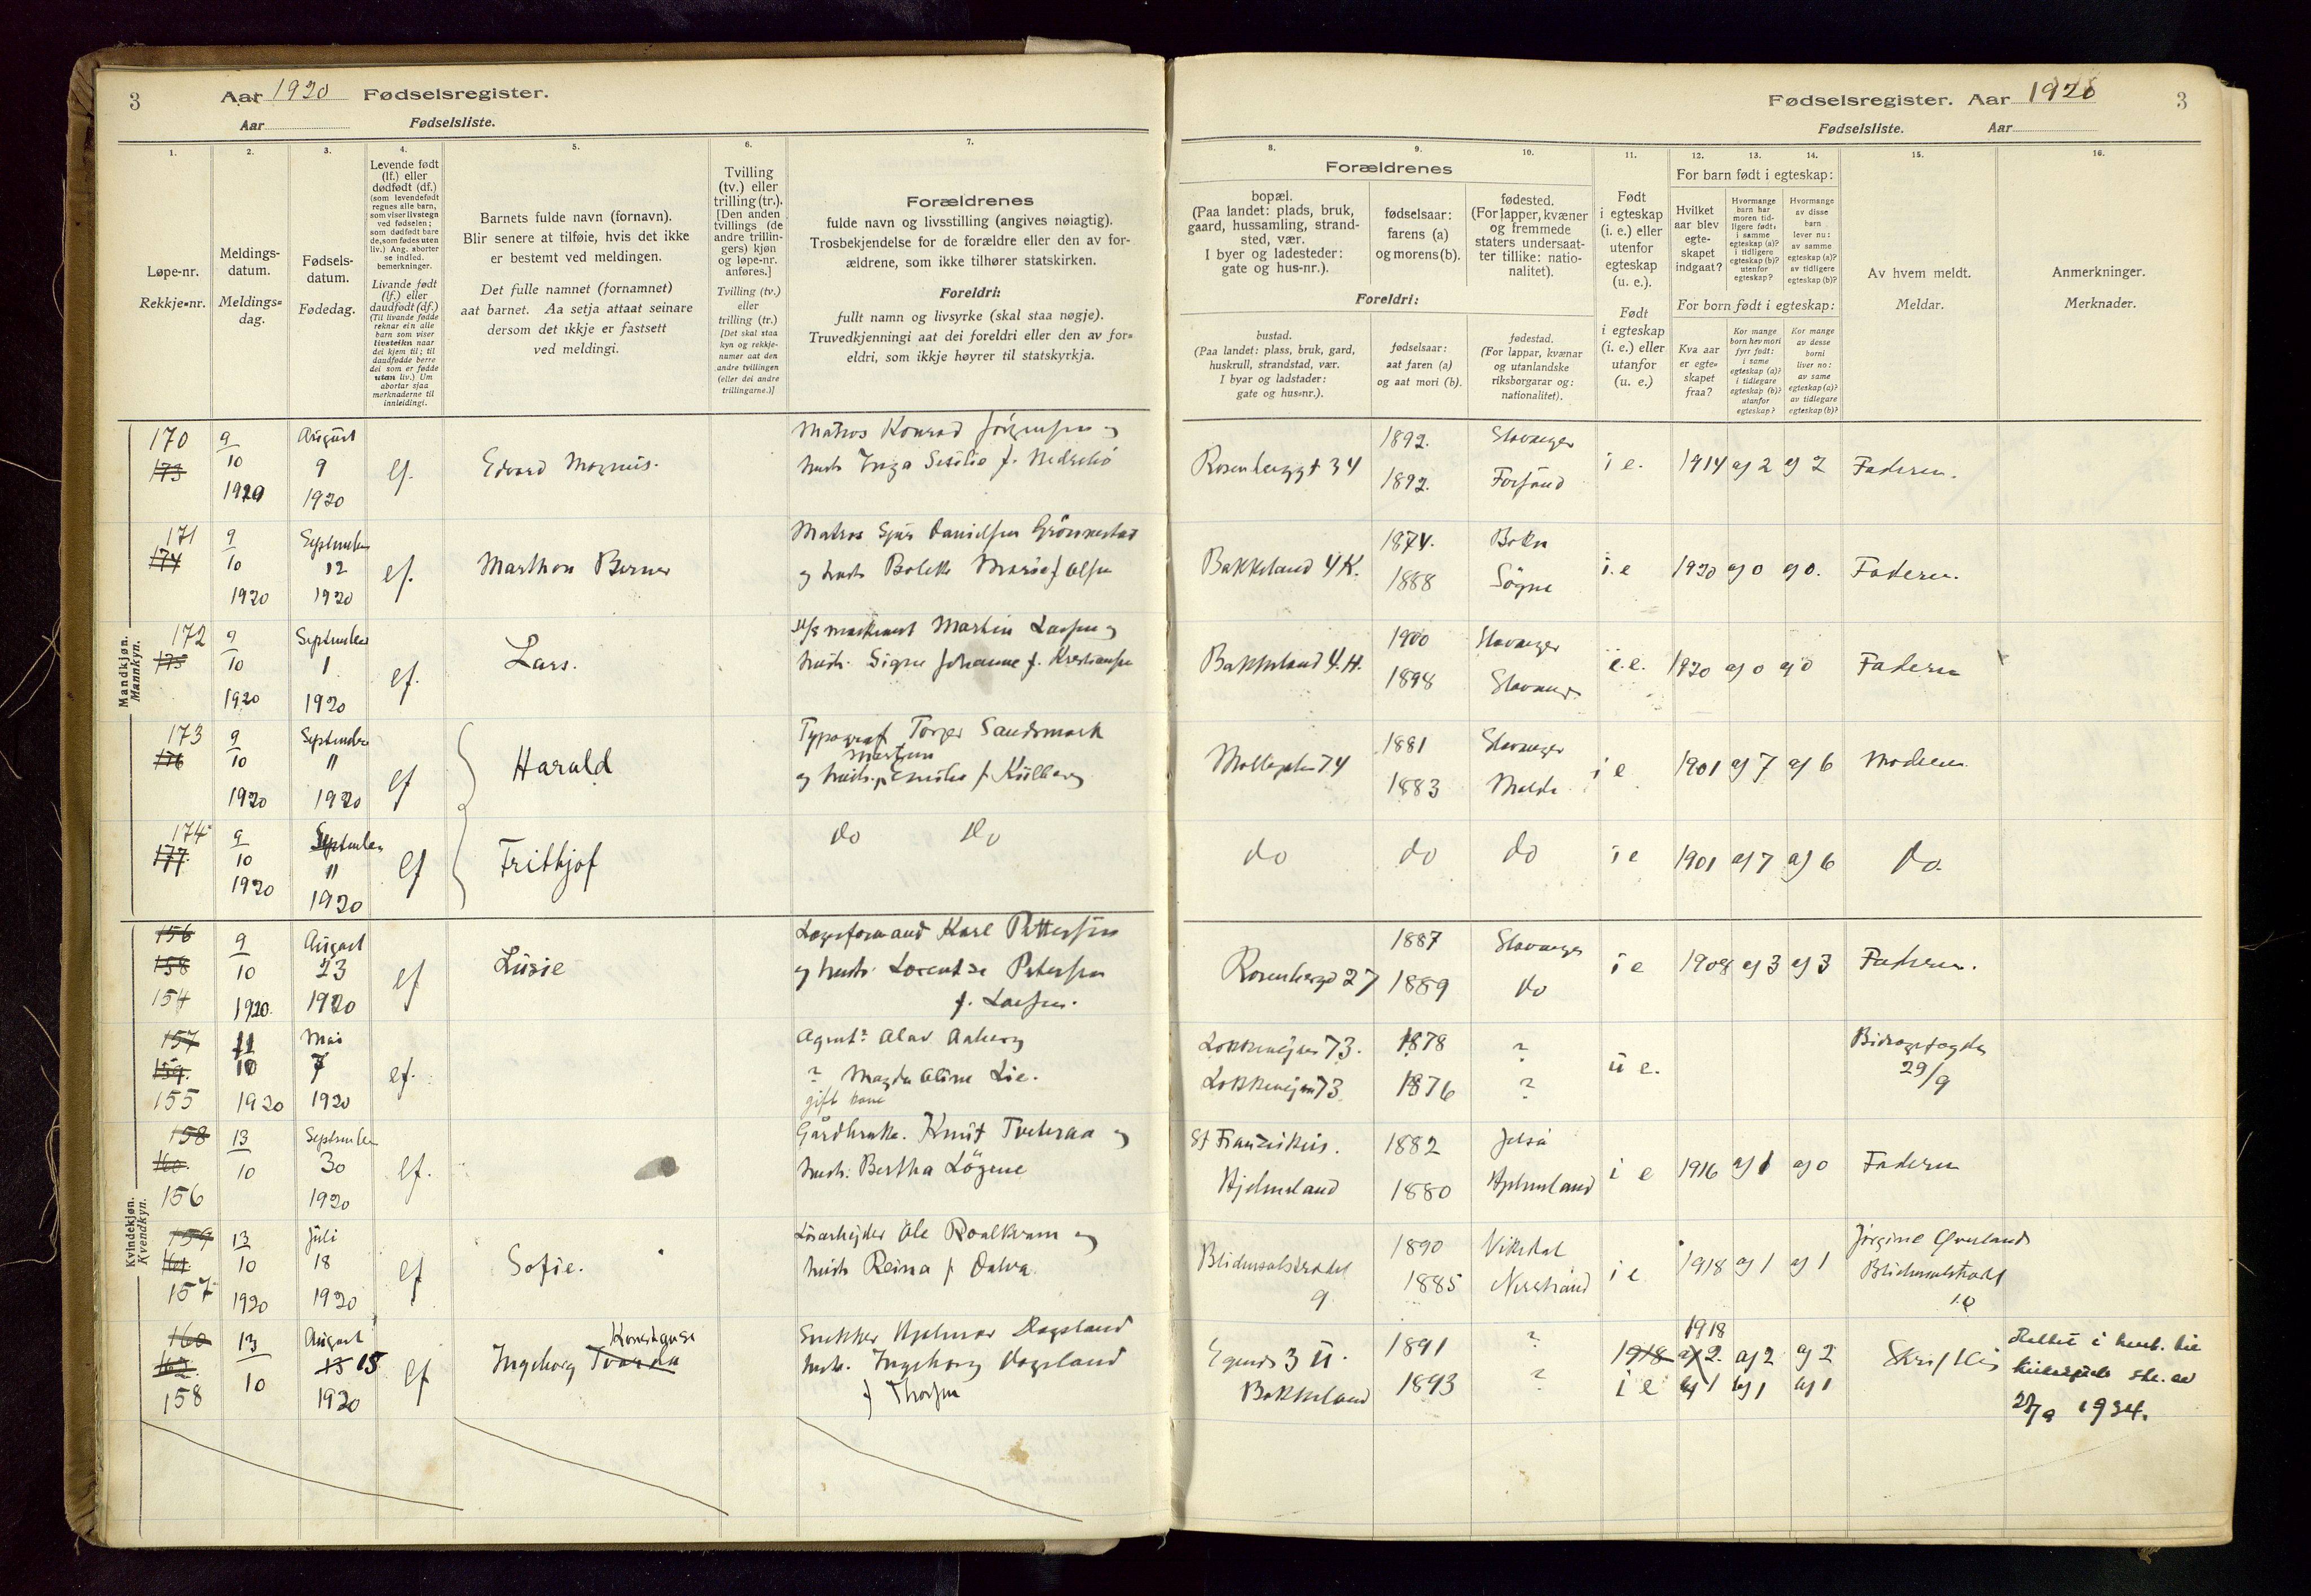 3 Aar 1920 Fødselsregister.
Aar Fødselsliste.
1.
Løpe-nr.
Rekkje-nr.
2.
Meldings-
datum.
Meldings-
dag.
3.
Fødsels-
datum.
Fødedag.
4.
Levende født
(lf.) eller
dødfødt (df.)
(som levendefødt
regnes alle barn,
som viser livstegn
ved fødselen;
som dødfødt bare
de, som fødes uten
liv.) Ang. aborter
se indled.
bemerkninger.
Livande født
(lf.) eller
daudfødt (df.)
(Til livande fødde
reknar ein alle
barn som viser
livsteikn naar
dei kjem til; til
daudfødde berre
dei som er fødde
utan liv.) Um
abortar sjaa
merknaderne til
innleidingi.
5.
Barnets fulde navn (fornavn).
Blir senere at tilføie, hvis det ikke
er bestemt ved meldingen.
Det fulle namnet (fornamnet)
aat barnet. Aa setja attaat seinare
dersom det ikkje er fastsett
ved meldingi.
6.
Tvilling
(tv.) eller
trilling (tr.).
[Den anden
tvillings (de
andre trillin-
gers) kjøn
og løpe-nr.
anføres.]
Tvilling (tv.)
eller
trilling (tr.)
[Det skal staa
kyn og rekkje-
numer aat den
andre tvillingen
(eller dei andre
trillingarne.)]
7.
Forældrenes
fulde navn og livsstilling (angives nøiagtig).
Trosbekjendelse for de forældre eller den av for-
ældrene, som ikke tilhører statskirken.
Foreldri:
fullt namn og livsyrke (skal staa nøgje).
Truvedkjenningi aat dei foreldri eller den av for-
eldri, som ikkje høyrer til statskyrkja.
Mandkjøn.
Mannkyn.
170
173
9
10
1920
August
9
1920
lf.
Edvard Magnus.
Matros Konrad Jørgensen og
hust. Inga Sesilie f. Nedrebø
171
174
9
10
1920
September
12
1920
lf.
Marthon Berner
Matros Sjur Danielsen Grönnestad
og hust. Bolette Marie f Olsen
172
175
9
10
1920
September
1
1920
lf.
Lars.
Martin Larsen og
hust. Signe Johanne f. Kristiansen
173
176
9
10
1920
September
11
1920
lf
Harald
Typograf Torger Sandsmark
og hust. Emilie f. Külberg
174
177
9
10
1920
September
11
1920
lf
Frithjof
do do
Kvindekjøn.
Kvendkyn.
156
158
154
9
10
1920.
August
23
1920
lf
Lusie
Lagerformand Karl Pettersen
og hust. Lorentse Petersen
f. Larsen.
157
159.
155
11
10
1920
Mai
7
1920
lf.
Agent: Olav Aaberg
? Magda Oline Lie.
gift kone
158
160.
156
13
10
September
30
1920
lf.
Gårdbruk. Knut Tveteraa og
hust. Bertha Lögene
159
161
157
13
10
1920
Juli
18
1920
lf
Sofie.
Løsarbejder Ole Roalkvam og
hust Reina f Dalva
160
162.
158
13
10
August
13 15
1920
lf
Ingeborg Tvarda
Konstanse
Snekker Hjalmar Dagsland
hust. Ingeborg Dagsland
f Thorsen
Fødselsregister. Aar 1920 3
Fødselsliste. Aar
8.
Forældrenes
bopæl.
(Paa landet: plads, bruk,
gaard, hussamling, strand-
sted, vær.
I byer og ladesteder:
gate og hus-nr.).
Foreldri:
bustad.
(Paa landet: plass, bruk, gard,
huskrull, strandstad, vær.
I byar og ladstader:
gate og hus-nr.).
9.
fødselsaar:
farens (a)
og morens (b).
fødselsaar:
aat faren (a)
og aat mori (b).
10.
fødested.
(For lapper, kvæner
og fremmede
staters undersaat-
ter tillike: natio-
nalitet).
fødestad.
(For lappar, kvænar
og utanlandske
riksborgarar og:
nationalitet).
11.
Født
i egteskap
(i. e.) eller
utenfor
egteskap
(u. e.).
Født
i egteskap
(i. e.) eller
utanfor
(u. e.)
12. 13. 14.
For barn født i egteskap:
Hvilket
aar blev
egte-
skapet
indgaat?
Hvormange
barn har
moren tid-
ligere født:
i samme
egteskap (a)?
i tidligere
egteskap (b)?
utenfor
egteskap?
Hvormange
av disse
barn
lever nu:
av samme
egteskap (a)?
av tidligere
egteskap (b)?
For born født i egteskap:
Kva aar
er egte-
skapet
fraa?
Kor mange
born hev mori
fyrr født:
i same
egteskap (a)?
i tidlegare
egteskap (b)?
utanfor
egteskap?
Kor mange
av desse
borni
liver no:
av same
egteskap (a)?
av tidlegare
egteskap (b)?
15.
Av hvem meldt.
Meldar.
16.
Anmerkninger.
Merknader.
Rosenberggt 34
1892.
1892.
Stavanger
Forsand
i e.
1914 a) 2 a) 2
Faderen.
Bakkeland 4 K.
1874.
1888
Bokn
Sögne
i. e
1920 a) 0 a) 0.
Faderen.
Bakkeland 4. H.
1900
1898
Stavanger
Stavanger
i. e.
1920 a) 0 a) 0
Faderen
74
1881
1883
Stavanger
Molde
i e
1901 a) 7 a) 6
Moderen.
do
do
do
i e
1901 a) 7 a) 6
do.
Rosenberg 27
1887
1889
Stavanger
do
i e
1908 a) 3 a) 3
Faderen.
Lokkevejen 73.
Lokkevejen 73
1878
1876
?
?
u e.
Bidragsfogden
29/9
St Franziskus.
Hjelmeland
1882
1880
Jelsa
Hjelmeland
i e
1916 a) 1 a) 0
Faderen
Blidensolstrædet
9.
1890
1885
Vikedal
Nerstrand
i e
1918 a) 1 a) 1
Jørgine Øverland
Blidensolstræde
10
Egenes 3 U.
Bakkeland
1891
1893
?
?
1918
i e
1918
a) 2. a) 2 a) 2
b) 1 b) 1 b) 1
Skriftlig
Rettet i henh. til
skr. av
28/9 1934.